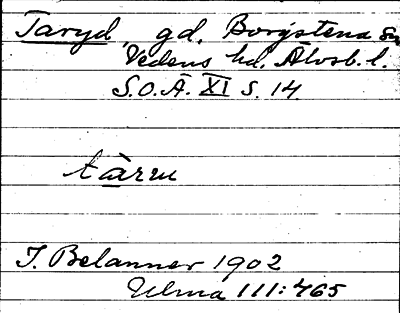 Taryd, gd, Borgstena sn
Vedens hd. Älvsb. l.
S.O.Ä. XI s. 14.
tàrru
J. Belanner 1902
Ulma 111:465